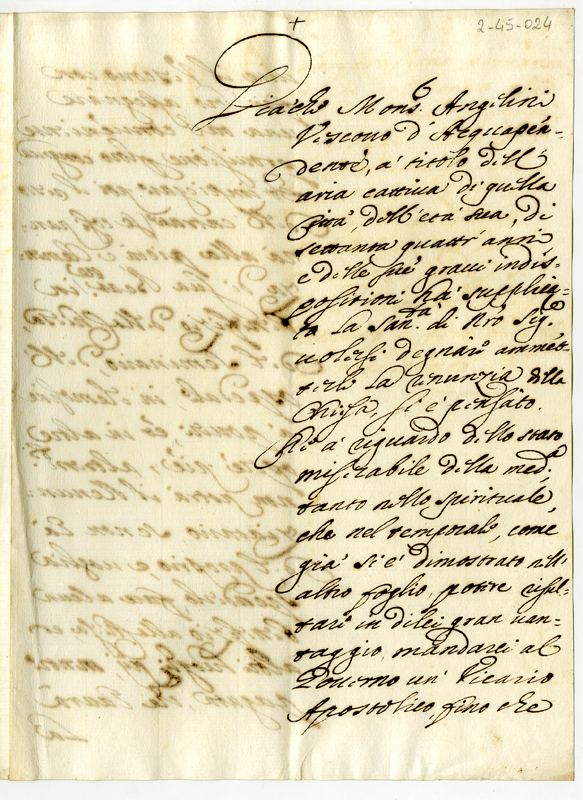 +
2-45-024
Giache Mons.r Angelini
Vescovo d'Acquapen-
dente, à titolo dell'
aria cattiva di quella
Città, dell'età sua, di
settanta quattr'anni
e delle sue gravi indis-
positioni hà supplica-
to la San.tà di Nrò Sig.
volersi degnare ammet-
terle la renunzia della
Chiesa, si è pensato.
Che à riguardo dello stato
miserabile della med.
tanto nello spirituale,
che nel temporale, come
già si è dimostrato nell'
altro foglio, potere risul-
tare in di lei gran van-
taggio, mandarci al
Governo un' Vicario
Apostolico, fino che